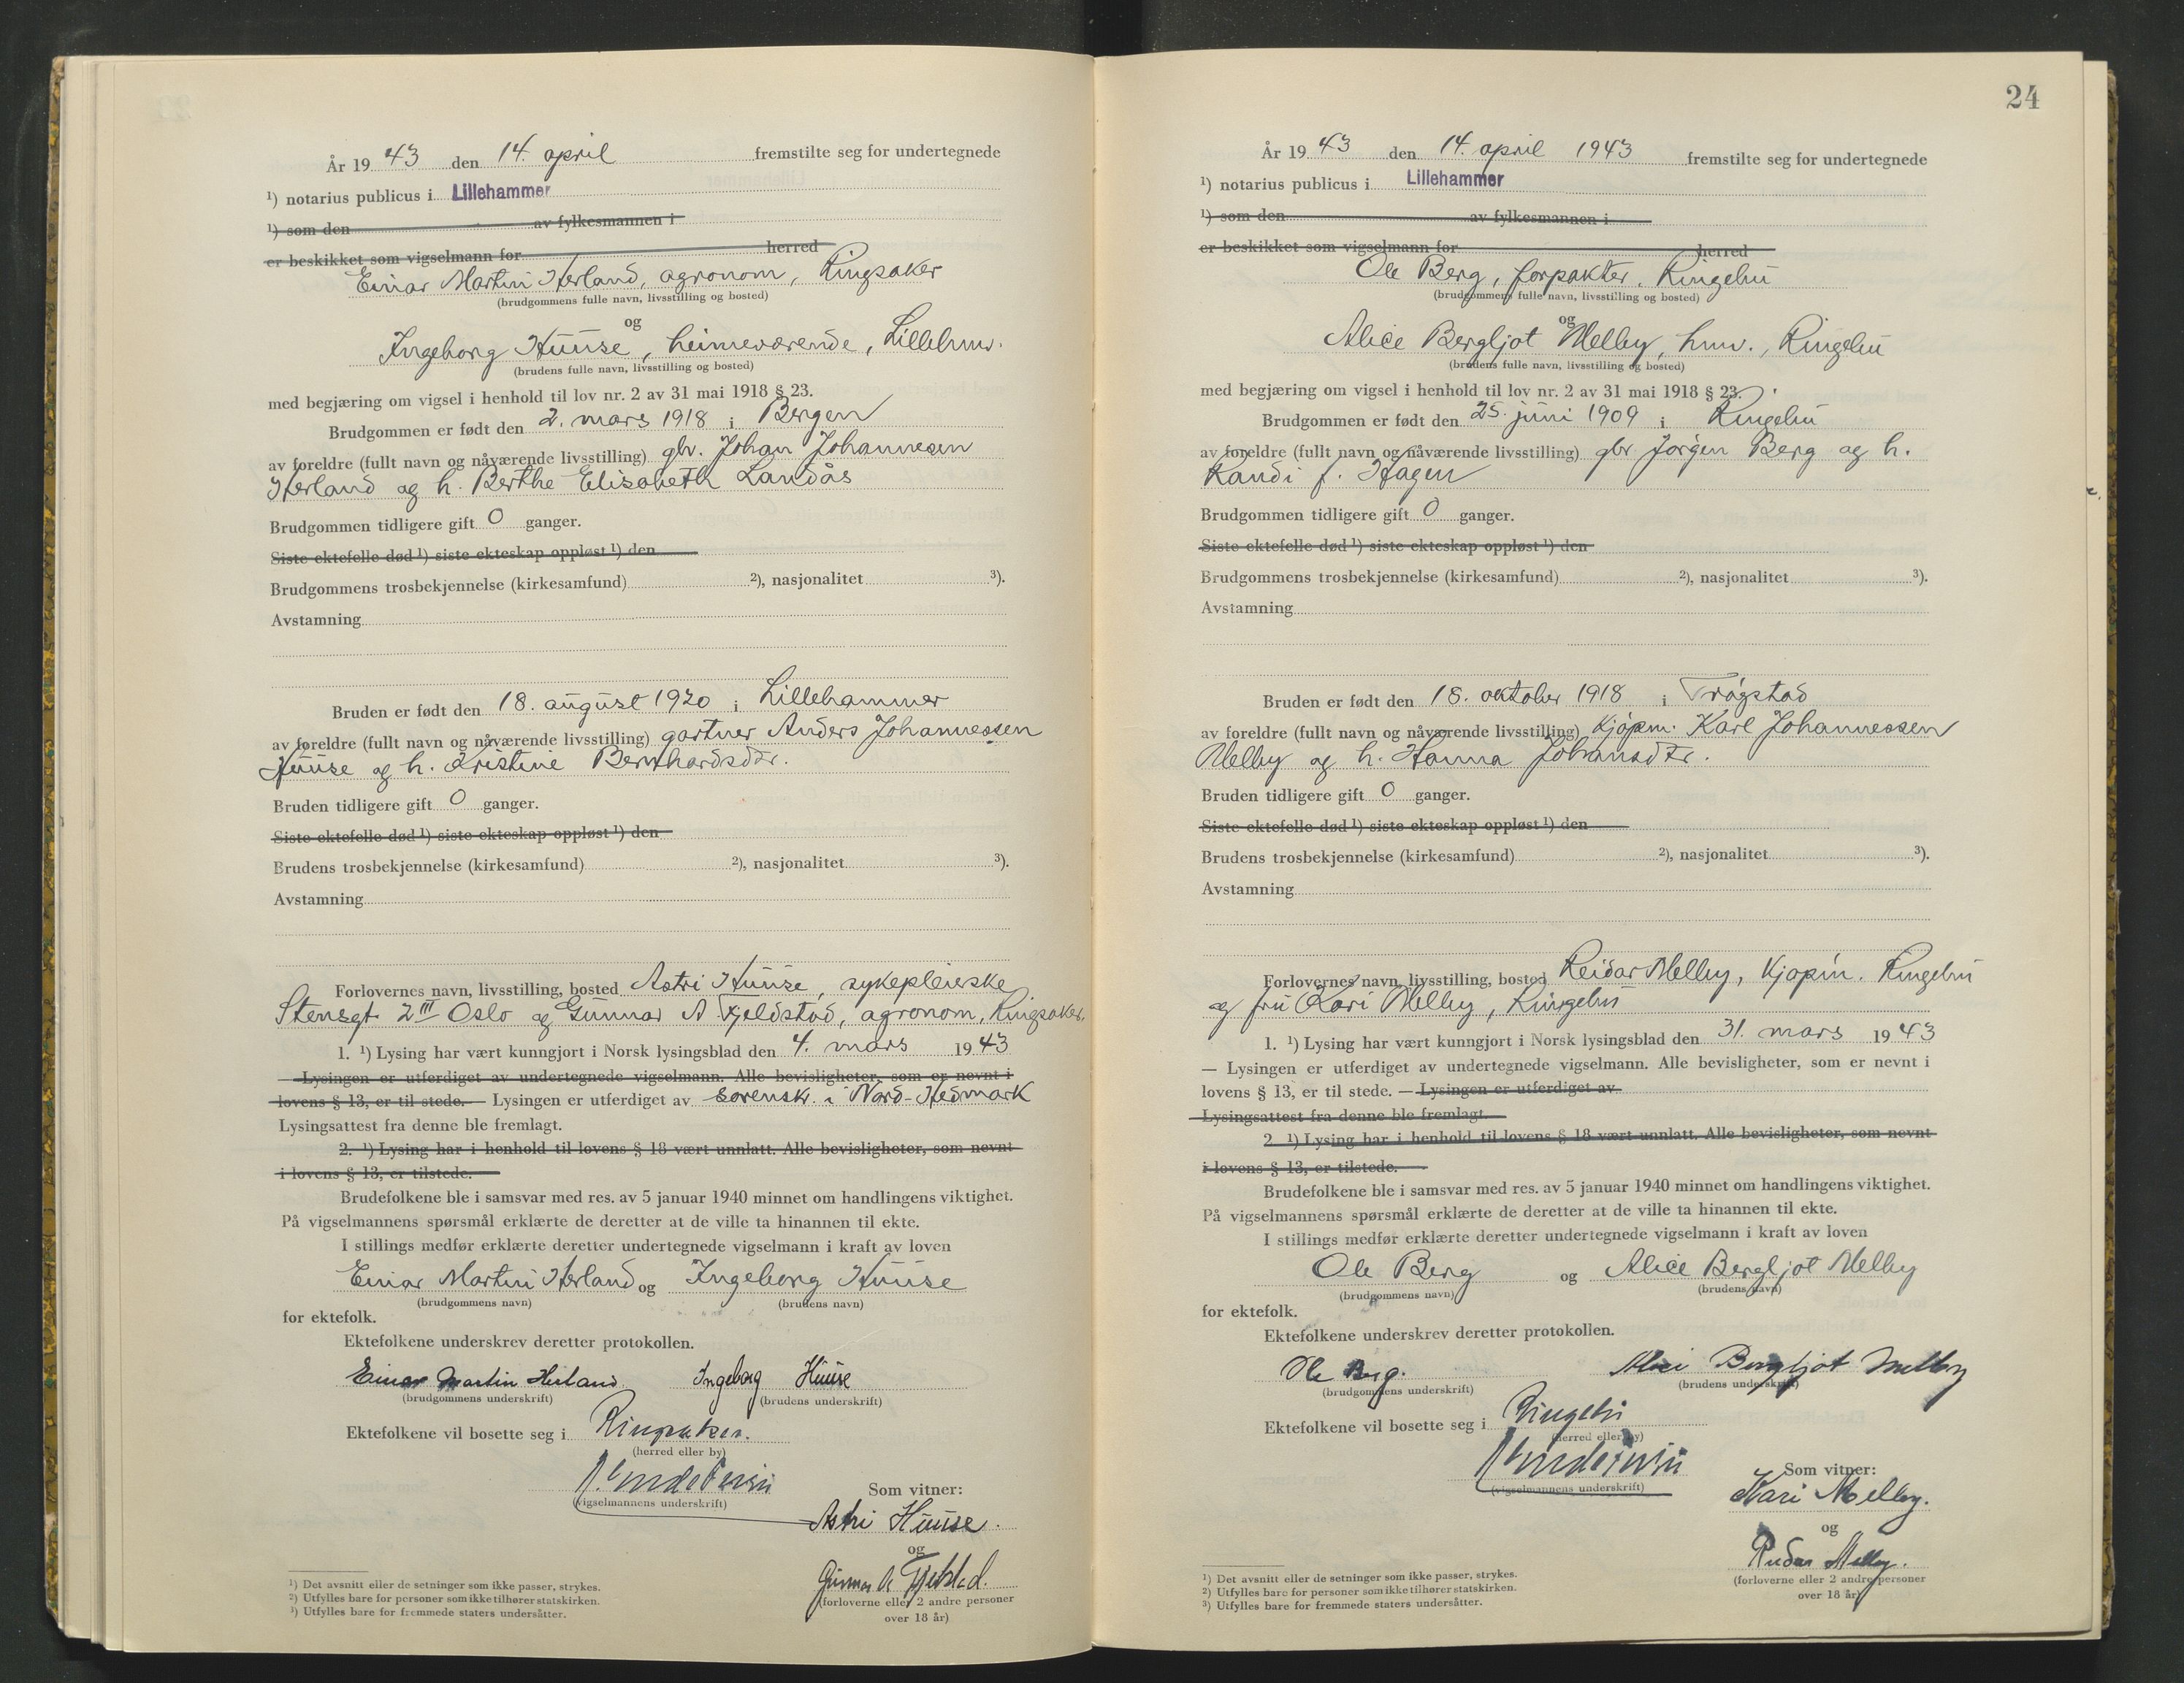 År 19 43 den 14. april fremstilte seg for undertegnede
¹) notarius publicus i Lillehammer
¹) som den av fylkesmannen i
er beskikket som vigselmann for herred
Einar Martin Herland, agronom, Ringsaker
(brudgommens fulle navn, livsstilling og bosted)
og
Ingeborg Huuse, heimeværende, Lillehmr.
(brudens fulle navn, livsstilling og bosted)
med begjæring om vigsel i henhold til lov nr. 2 av 31 mai 1918 § 23.
Brudgommen er født den 2. mars 1918 i Bergen
av foreldre (fullt navn og nåværende livsstilling) gbr. Johan Johannesen
Herland og h. Berthe Elisabeth Landås
Brudgommen tidligere gift 0 ganger.
Siste ektefelle død ¹) siste ekteskap oppløst ¹) den
Brudgommens trosbekjennelse (kirkesamfund) ²), nasjonalitet ³).
Avstamning
Bruden er født den 18. august 1920 i Lillehammer
av foreldre (fullt navn og nåværende livsstilling) gartner Anders Johannessen
Huuse og h. Kristine Bernhardsdtr.
Bruden tidligere gift 0 ganger.
Siste ektefelle død ¹) siste ekteskap oppløst ¹) den
Brudens trosbekjennelse (kirkesamfund) ²), nasjonalitet ³).
Avstamning
Forlovernes navn, livsstilling, bosted Astri Huuse, sykepleierske
Stensgt 2 III Oslo og Gunnar A Fjeldstad, agronom, Ringsaker.
1. ¹) Lysing har vært kunngjort i Norsk lysingsblad den 4. mars 19 43
— Lysingen er utferdiget av undertegnede vigselmann. Alle bevisligheter, som er nevnt i
lovens § 13, er til stede. — Lysingen er utferdiget av sorenskr. i Nord-Hedmark
Lysingsattest fra denne ble fremlagt.
2. ¹) Lysing har i henhold til lovens § 18 vært unnlatt. Alle bevisligheter, som nevnt
i lovens § 13, er tilstede.
Brudefolkene ble i samsvar med res. av 5 januar 1940 minnet om handlingens viktighet.
På vigselmannens spørsmål erklærte de deretter at de ville ta hinannen til ekte.
I stillings medfør erklærte deretter undertegnede vigselmann i kraft av loven
Einar Martin Herland og Ingeborg Huuse
(brudgommens navn) (brudens navn)
for ektefolk.
Ektefolkene underskrev deretter protokollen.
Einar Martin Herland Ingeborg Huuse
(brudgommens underskrift) (brudens underskrift)
Ektefolkene vil bosette seg i Ringsaker.
(herred eller by)
(vigselmannens underskrift)
Som vitner:
Astri Huuse.
og
Gunnar A Fjeldstad.
(forloverne eller 2 andre personer
over 18 år)
¹) Det avsnitt eller de setninger som ikke passer, strykes.
²) Utfylles bare for personer som ikke tilhører statskirken.
³) Utfylles bare for fremmede staters undersåtter.
24
År 19 43 den 14. april 1943 fremstilte seg for undertegnede
¹) notarius publicus i Lillehammer
¹) som den av fylkesmannen i
er beskikket som vigselmann for herred
Ole Berg, forpakter, Ringebu
(brudgommens fulle navn, livsstilling og bosted)
og
Alice Bergljot Melby, hmv., Ringebu
(brudens fulle navn, livsstilling og bosted)
med begjæring om vigsel i henhold til lov nr. 2 av 31 mai 1918 § 23.
Brudgommen er født den 25. juni 1909 i Ringebu
av foreldre (fullt navn og nåværende livsstilling) gbr Jørgen Berg og h.
Randi f. Hagen
Brudgommen tidligere gift 0 ganger.
Siste ektefelle død ¹) siste ekteskap oppløst ¹) den
Brudgommens trosbekjennelse (kirkesamfund) ²), nasjonalitet ³).
Avstamning
Bruden er født den 18. oktober 1918 i Trøgstad
av foreldre (fullt navn og nåværende livsstilling) Kjøpm. Karl Johannessen
Melby og h. Hanna Johansdtr.
Bruden tidligere gift 0 ganger.
Siste ektefelle død ¹) siste ekteskap oppløst ¹) den
Brudens trosbekjennelse (kirkesamfund) ²), nasjonalitet ³).
Avstamning
Forlovernes navn, livsstilling, bosted Reidar Melby, Kjøpm. Ringebu
og fru Kari Melby, Ringebu
1. ¹) Lysing har vært kunngjort i Norsk lysingsblad den 31. mars 19 43
— Lysingen er utferdiget av undertegnede vigselmann. Alle bevisligheter, som er nevnt i
lovens § 13, er til stede. — Lysingen er utferdiget av
Lysingsattest fra denne ble fremlagt.
2. ¹) Lysing har i henhold til lovens § 18 vært unnlatt. Alle bevisligheter, som nevnt
i lovens § 13, er tilstede.
Brudefolkene ble i samsvar med res. av 5 januar 1940 minnet om handlingens viktighet.
På vigselmannens spørsmål erklærte de deretter at de ville ta hinannen til ekte.
I stillings medfør erklærte deretter undertegnede vigselmann i kraft av loven
Ole Berg og Alice Bergljot Melby
(brudgommens navn) (brudens navn)
for ektefolk.
Ektefolkene underskrev deretter protokollen.
Ole Berg. Alice Bergljot Melby
(brudgommens underskrift) (brudens underskrift)
Ektefolkene vil bosette seg i Ringebu
(herred eller by)
(vigselmannens underskrift)
Som vitner:
Kari Melby.
og
Reidar Melby.
(forloverne eller 2 andre personer
over 18 år)
¹) Det avsnitt eller de setninger som ikke passer, strykes.
²) Utfylles bare for personer som ikke tilhører statskirken.
³) Utfylles bare for fremmede staters undersåtter.